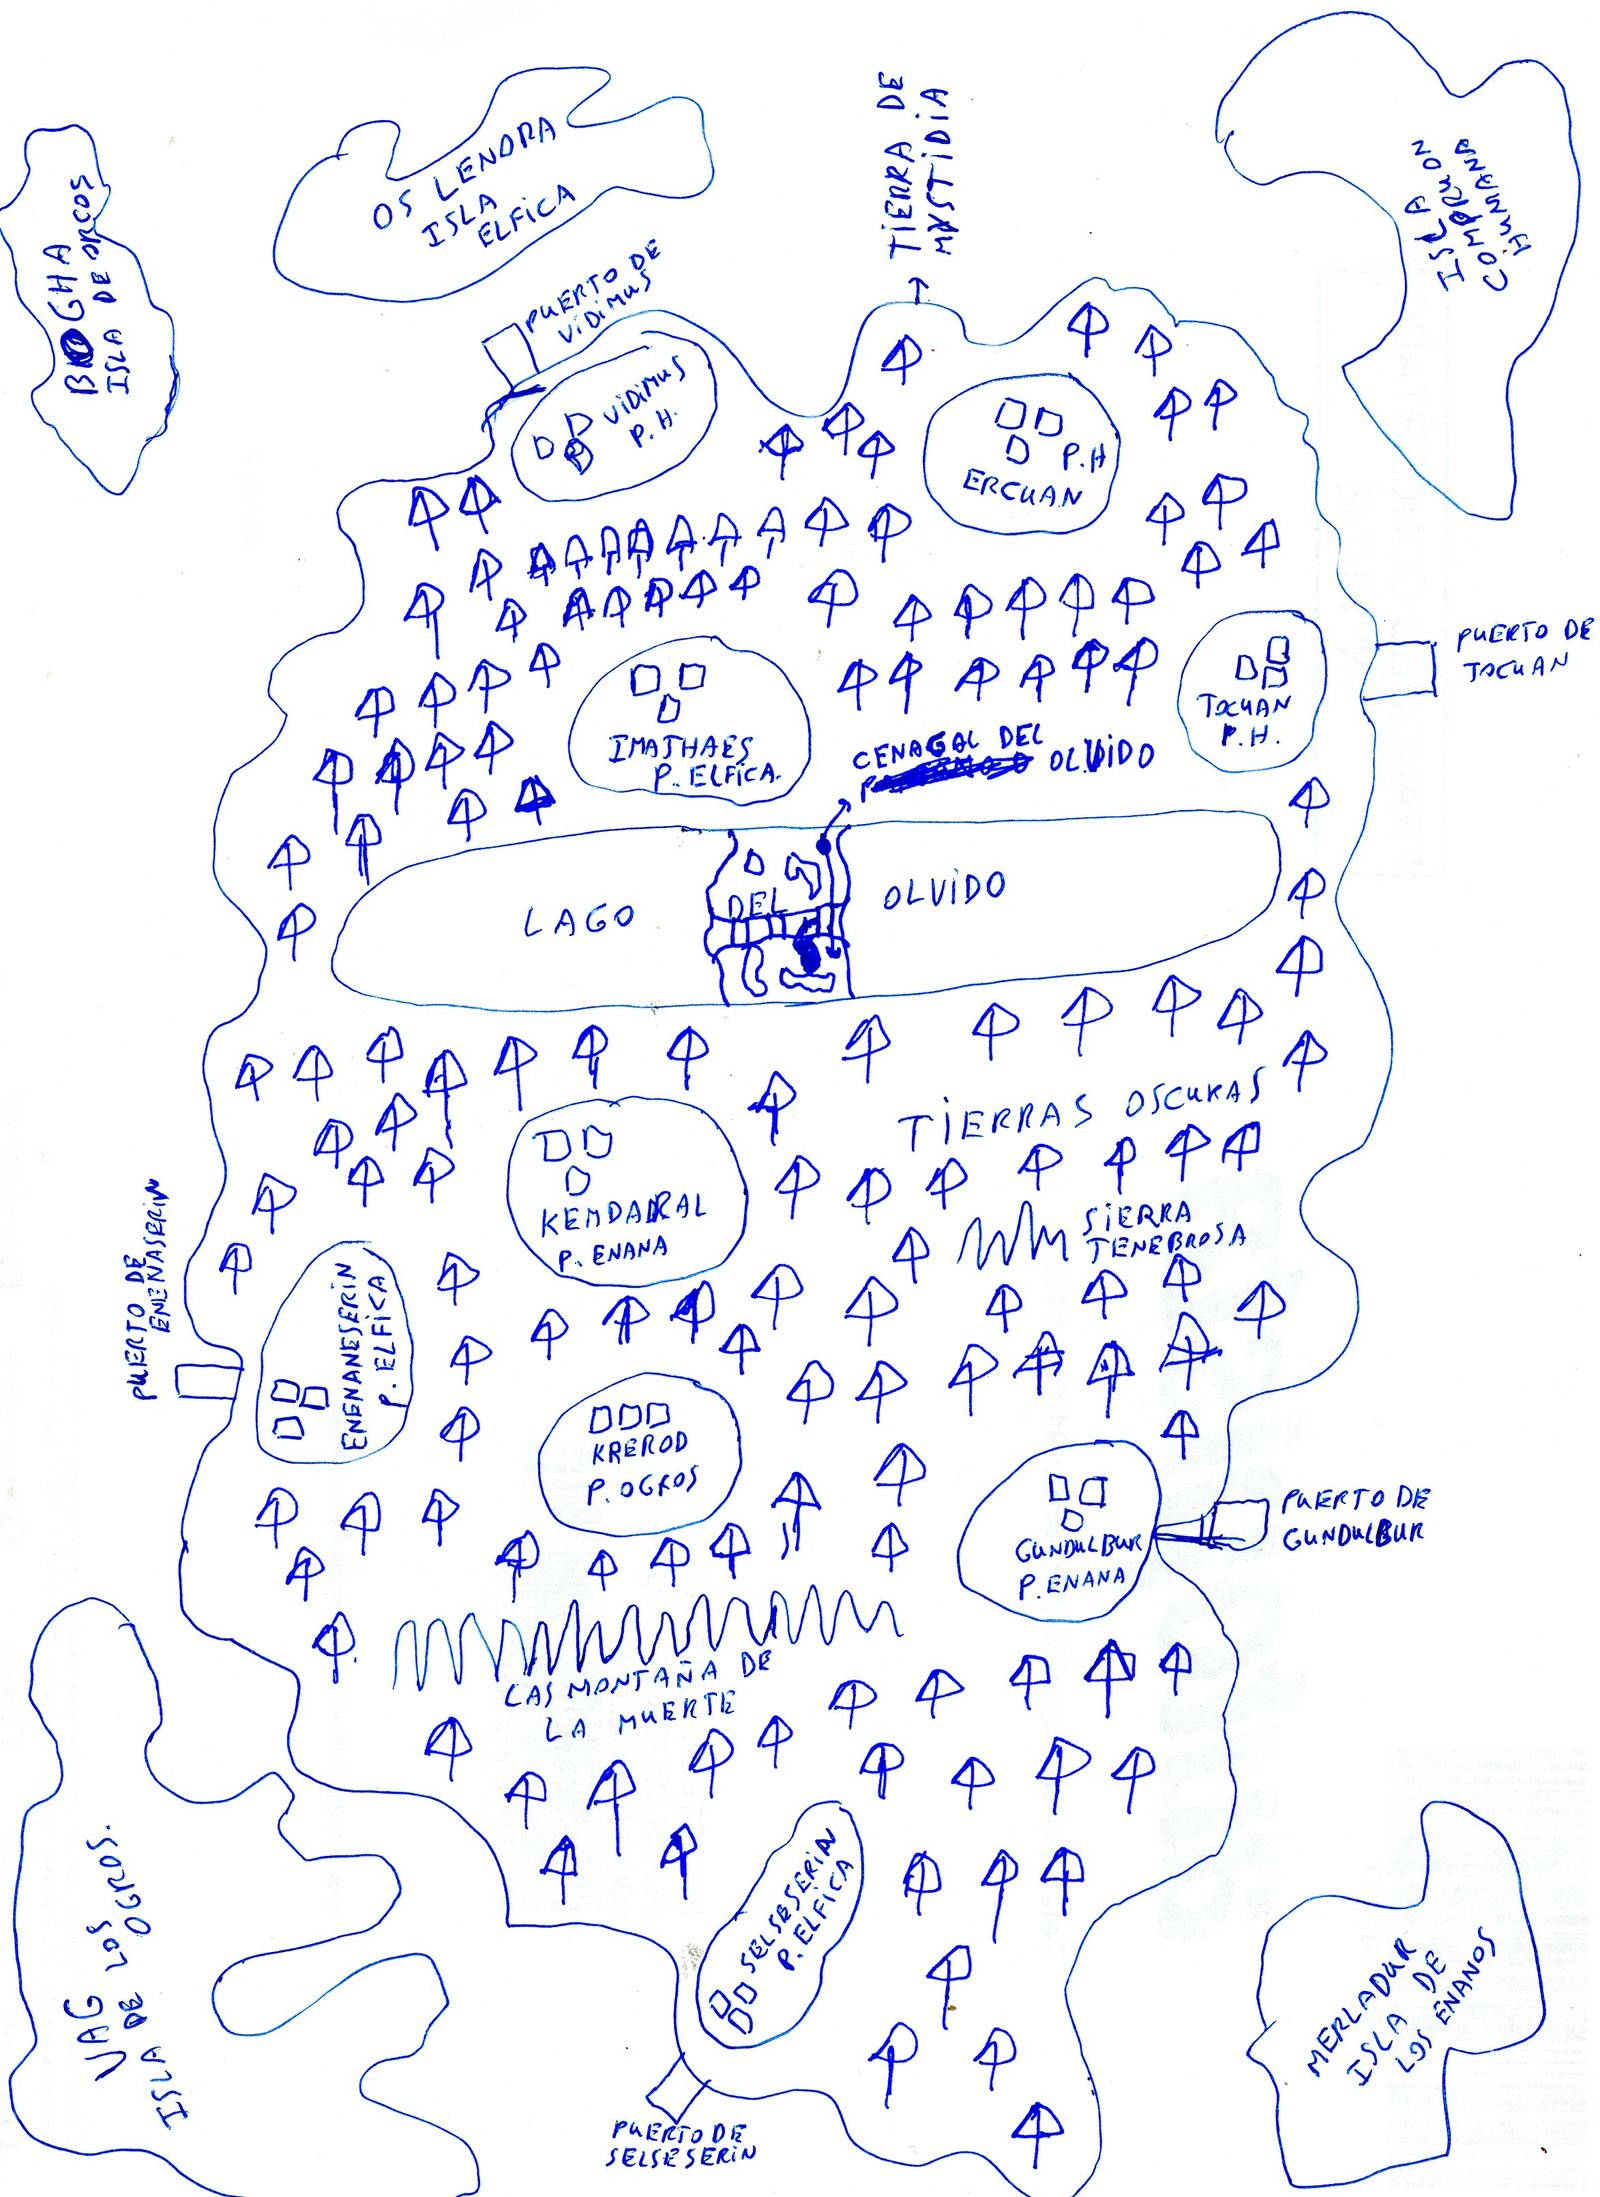 OS LENDRA
ISLA
ELFICA
TIERRA DE
ISLA
COMPRUON
HUMANA
ISLA DE ORCOS
PUERTO DE
VIDIMUS
VIDIMUS
P.H.
P.H
ERCUAN
PUERTO DE
TOCUAN
TOCUAN
P.H.
IMATHAES
P. ELFICA.
CENAGAL DEL
OLVIDO
LAGO DEL OLVIDO
TIERRAS OSCURAS
KEMDARAL
P. ENANA
SIERRA
TENEBROSA
PUERTO DE
ENENASERIN
ENENANESERIN
P. ELFICA
KREROD
P. OGROS
GUNDULBUR
P. ENANA
PUERTO DE
GUNDULBUR
LAS MONTAÑA DE
LA MUERTE
SELSESERIN
P. ELFICA
PUERTO DE
SELSESERIN
VAG
ISLA DE LOS
OGROS.
MERLADUR
ISLA DE
LOS ENANOS